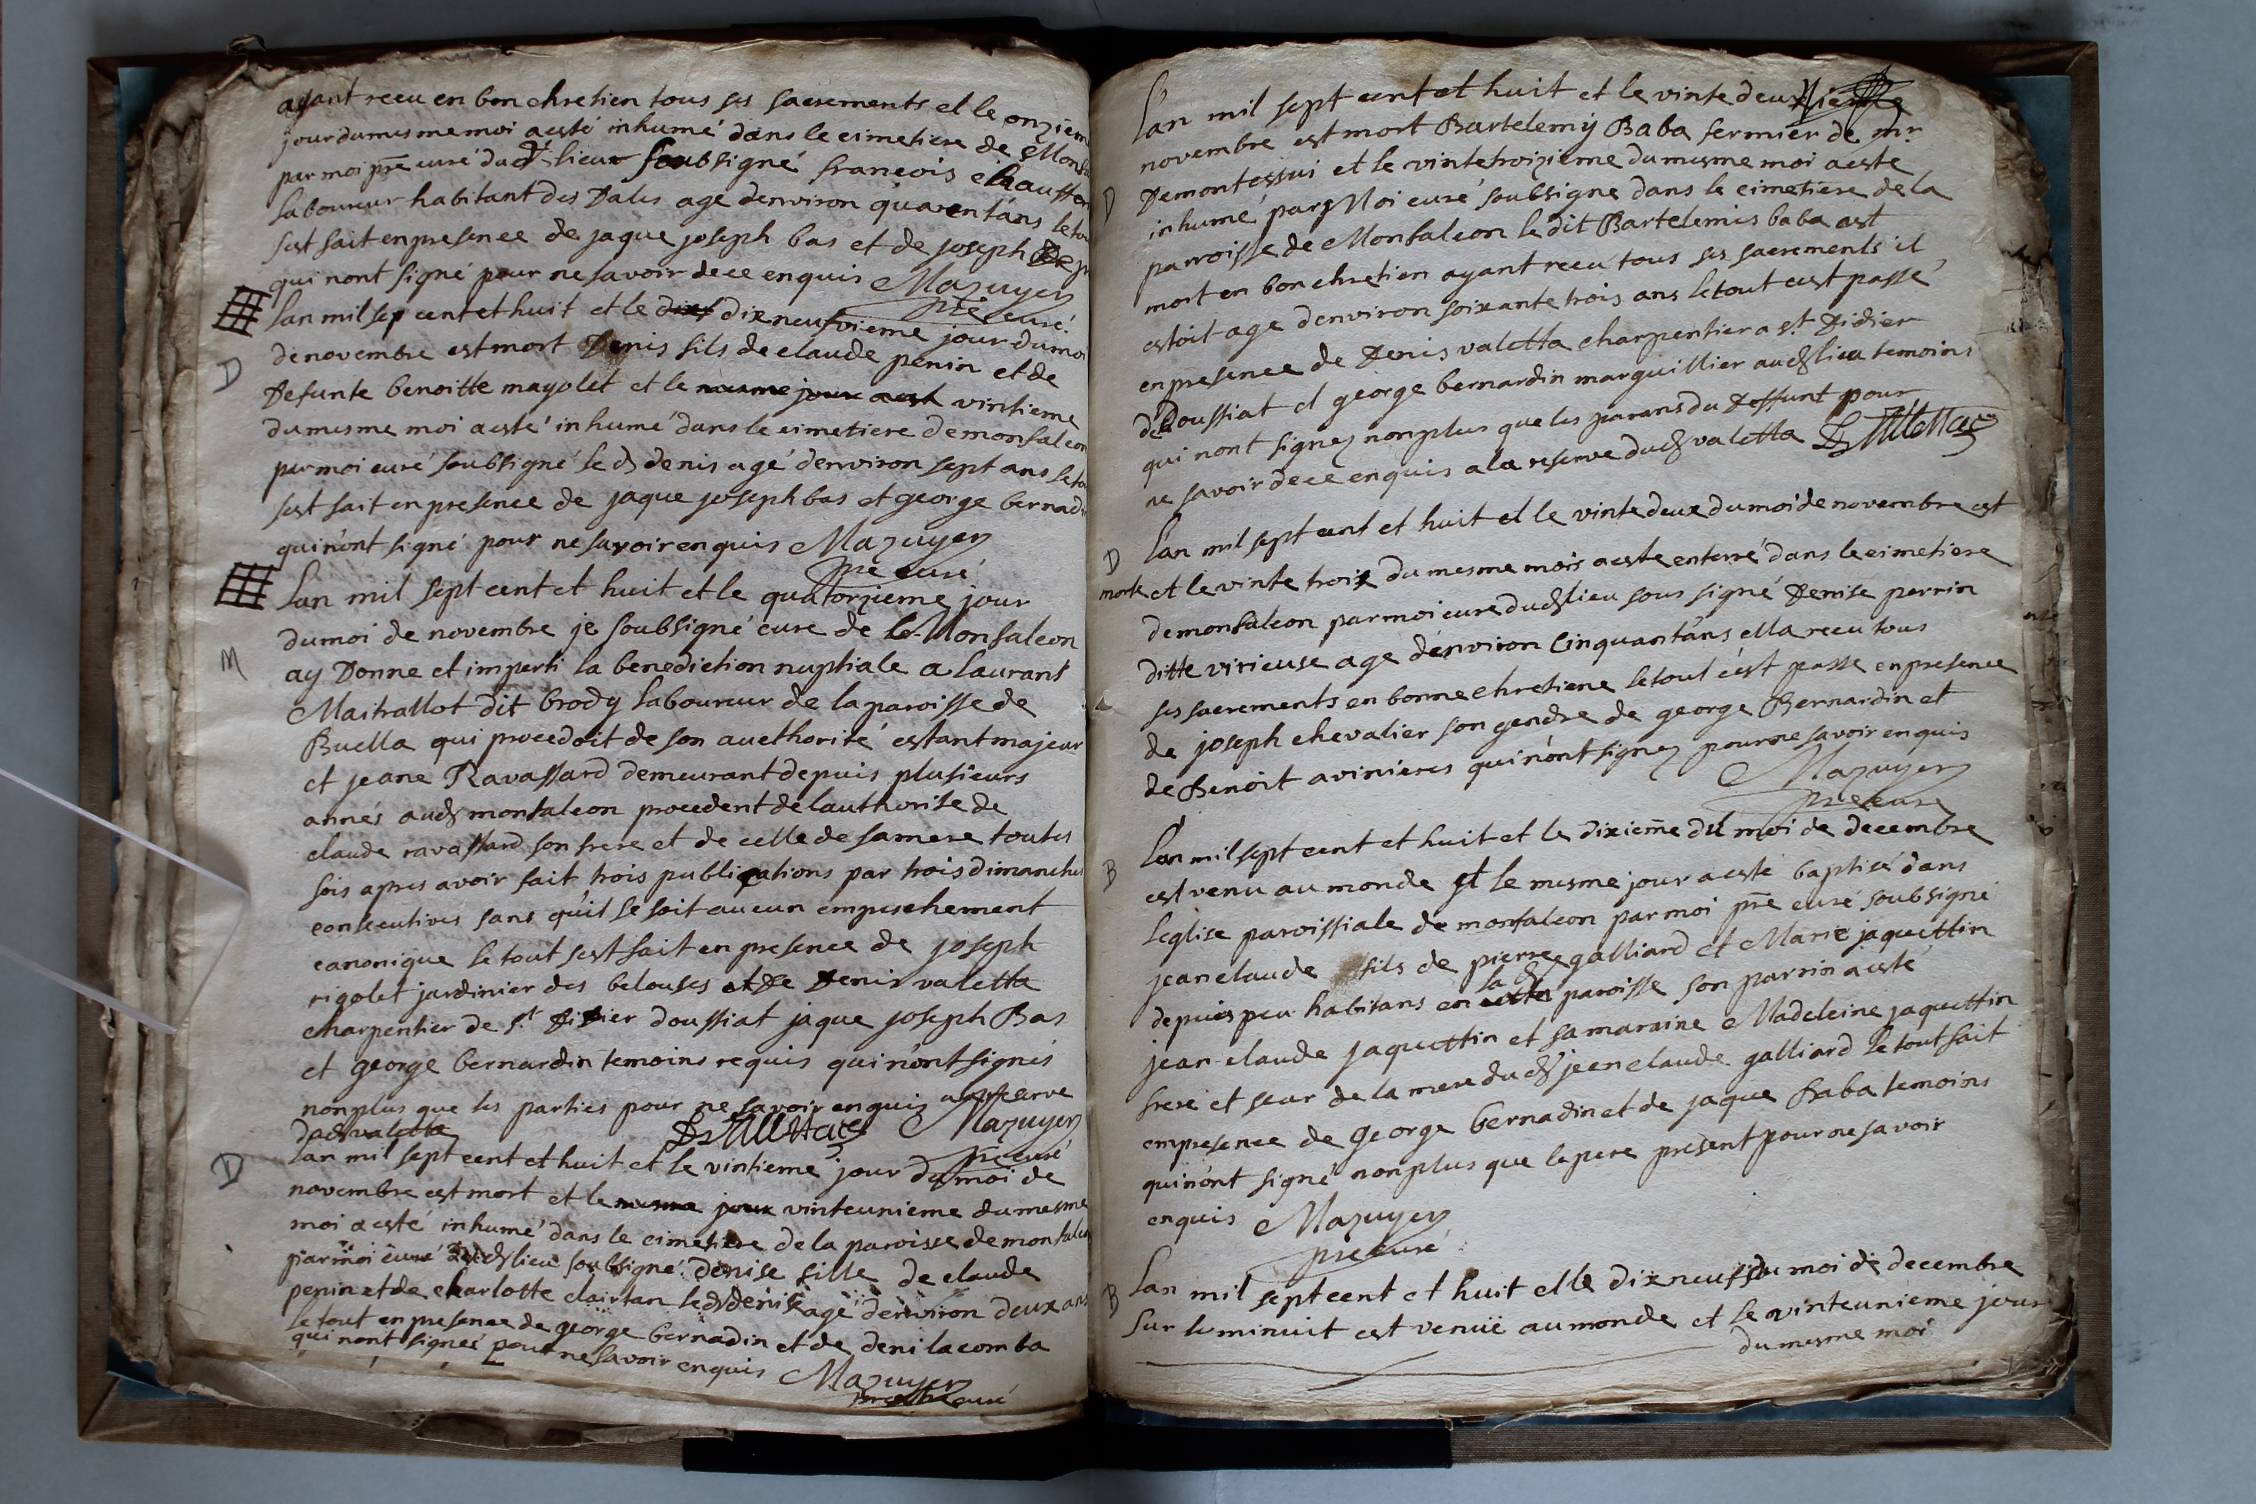 ayant receu en bon chretien tous ses sacrements et le onziem
jour du mesme moi a esté inhumé dans le cimetiere de Monfal
par moi pre curé dud lieu soubsigné francois chausson
laboureur habitant des Dalus age denviron quarent'ans le tou
sest fait en presence de jaque joseph bas et de joseph
qui nont signé pour ne savoir de ce enquis Mazuyer
pre curé
lan mil sep cent et huit et le dixneufvieme jour du moi
de novembre est mort Denis fils de claude penin et de
D
Defunte benoitte mayolet et le mesme jour a est vintieme
du mesme moi a esté inhumé dans le cimetiere de monfaleon
par moi curé soubsigné le d denis agé denviron sept ans le tou
sest fait en presence de jaque joseph bas et george bernadi
qui nont signé pour ne savoir enquis Mazuyer
pre curé
Lan mil sept cent et huit et le quatorzieme jour
du moi de novembre je soubsigné cure de Monfaleon
M
ay Donne et imparti la benediction nuptiale a laurant
Maitrallot dit brody laboureur de la paroisse de
Buella qui procedoit de son aucthorité estant majeur
et jeane Ravassard demeurant depuis plusieurs
annés aud monfaleon procedent de lauthorite de
claude ravassard son frere et de celle de sa mere toutes
fois apres avoir fait trois publications par trois dimanches
consecutives sans qu'il se soit aucun empeschement
canonique le tout sest fait en presence de joseph
rigolet jardinier des belouses et de Denis valetta
charpentier de s.t Didier doussiat jaque joseph Bas
et george bernardin temoins requis qui n'ont signés
non plus que les parties pour ne savoir enquis a la reserve
dud valetta Mazuyer
pre curé
D
lan mil sept cent et huit et le vintieme jour du moi de
novembre est mort et le mesme jour vinteunieme du mesme
moi a esté inhumé dans le cimetiere de la paroisse de monfaleon
par moi curé dud lieu soubsigné denise fille de claude
penin et de charlotte clairtan led denise agé denviron deux ans
le tout en presence de george bernadin et de deni lacomba
qui nont signeé pour ne savoir enquis Mazuyer
pre curé
Lan mil sept cent et huit et le vinte deuxieme
novembre est mort Bartelemy Baba fermier de mr.
D
Demontessui et le vintetroizieme du mesme moi a esté
inhumé par Moi curé soubsigne dans le cimetiere de la
parroisse de Monfaleon le dit Bartelemis baba est
mort en bon chretien ayant receu tous ses sacrements il
estoit age denviron soixante trois ans le tout cest passé
en presence de Denis valetta charpentier a s.t Didier
d'Doussiat et george bernardin marguillier aud lieu temoins
qui nont signez non plus que les parans du Deffunt pour
ne savoir de ce enquis a la reserve dud valetta
D
L'an mil sept cent et huit et le vinte deux du moi de novembre est
morte et le vinte trois du mesme mois a este enterré dans le cimetiere
de monfaleon par moi cure dud lieu sous signé Denise perrin
ditte virieuse age d'environ Cinquant'ans ella receu tous
ses sacrements en bonne chretiene le tout c'est passe en presence
de joseph chevalier son gendre de george Bernardin et
de Benoit avinieres qui n'ont signez pour ne savoir enquis
Mazuyer
pre cure
B
L'an mil sept cent et huit et le dixieme du moi de decembre
est venu au monde et le mesme jour a esté baptisé dans
leglise paroissiale de monfaleon par moi pre curé soubsigné
jean claude fils de pierre galliard et Marie jaquettin
depuis peu habitans en la d paroisse son parrin a esté
jean claude jaquettin et sa maraine Madeleine jaquettin
frere et seur de la mere dud jean claude galliard le tout fait
empresence de George bernadin et de jaque Baba temoins
qui n'ont signé non plus que le pere present pour ne savoir
enquis Mazuyer
pre curé
B
Lan mil sept cent et huit et le dixneuf du moi de decembre
sur le minuit est venuë au monde et le vinteunieme jour
du mesme moi